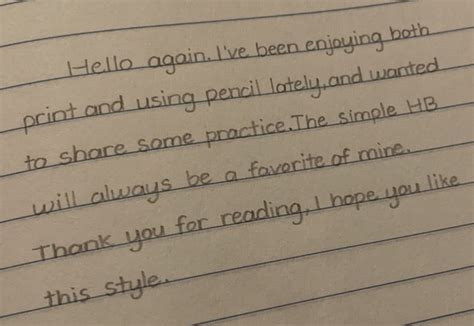 Hello again. I've been enjoying both
print and using pencil lately, and wanted
to share some practice. The simple HB
will always be a favorite of mine.
Thank you for reading, I hope you like
this style.